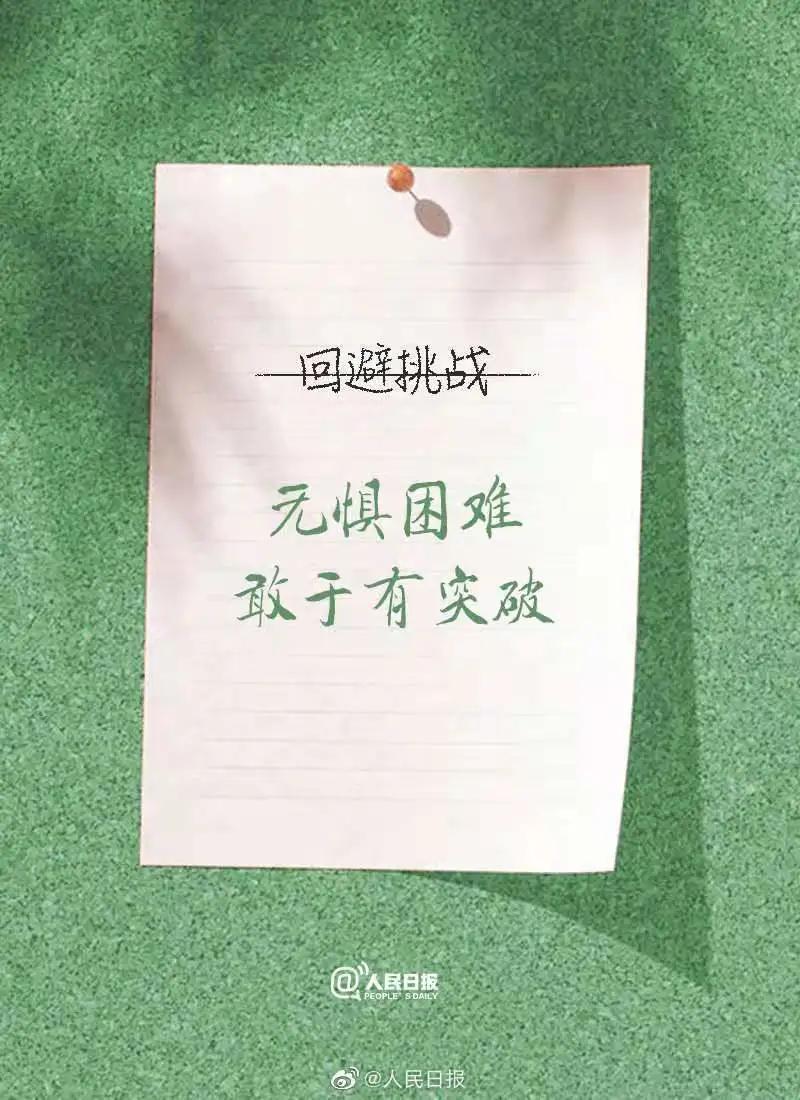 回避挑战
无惧困难
敢于有突破
@人民日报
PEOPLE'S DAILY
@人民日报